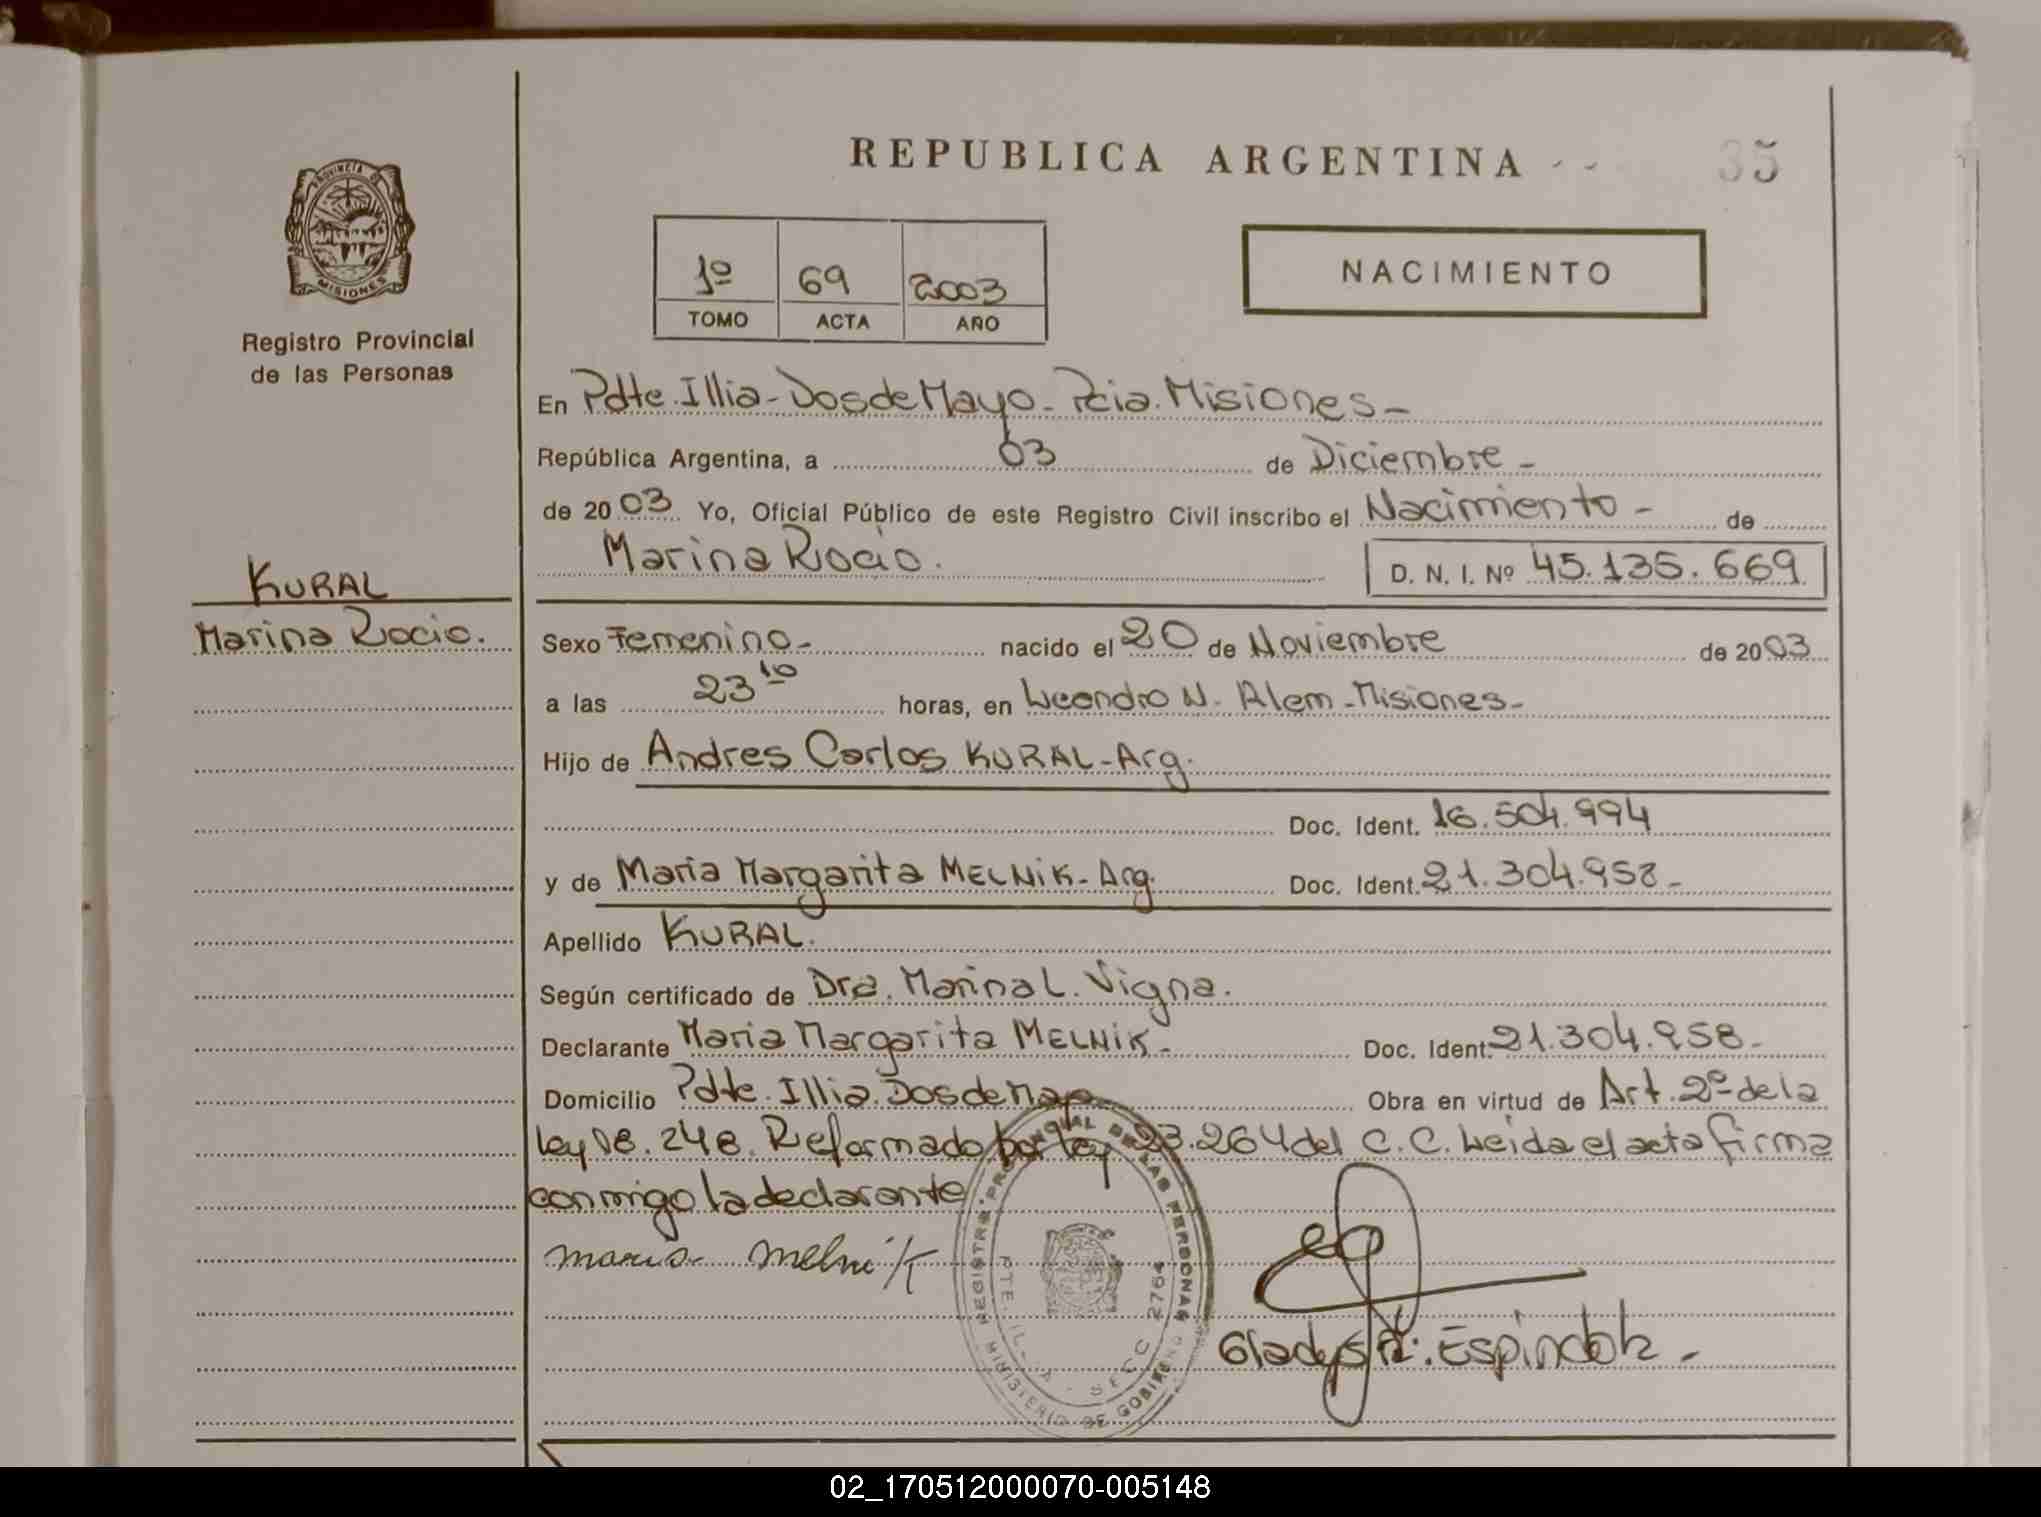 REPUBLICA ARGENTINA - -
35
PROVINCIA DE
MISIONES
Registro Provincial
de las Personas
1º 69 2003
TOMO ACTA AÑO
NACIMIENTO
En Pdte. Illia - Dos de Mayo - Pcia. Misiones -
República Argentina, a 03 de Diciembre -
de 20 03 Yo, Oficial Público de este Registro Civil inscribo el Nacimiento - de
Marina Rocio. D. N. I. Nº 45.135.669
KURAL
Marina Rocio.
Sexo Femenino - nacido el 20 de Noviembre de 20 03
a las 23 10 horas, en Leandro N. Alem - Misiones -
Hijo de Andres Carlos KURAL - Arg.
Doc. Ident. 16.504.994
y de Maria Margarita MELNIK - Arg. Doc. Ident. 21.304.958 -
Apellido KURAL.
Según certificado de Dra. Marina L. Vigna.
Declarante Maria Margarita MELNIK - Doc. Ident. 21.304.958 -
Domicilio Pdte. Illia. Dos de Mayo Obra en virtud de Art. 2º de la
Ley 18.248. Reformado por ley 23.264 del C. C. Leida el acta firma
conmigo la declarante
Maria Melnik
REGISTRO PROVINCIAL DE LAS PERSONAS
MINISTERIO DE GOBIERNO
PTE. ILLIA - SECC 2764
Gladys R. Espindola -
02_170512000070-005148